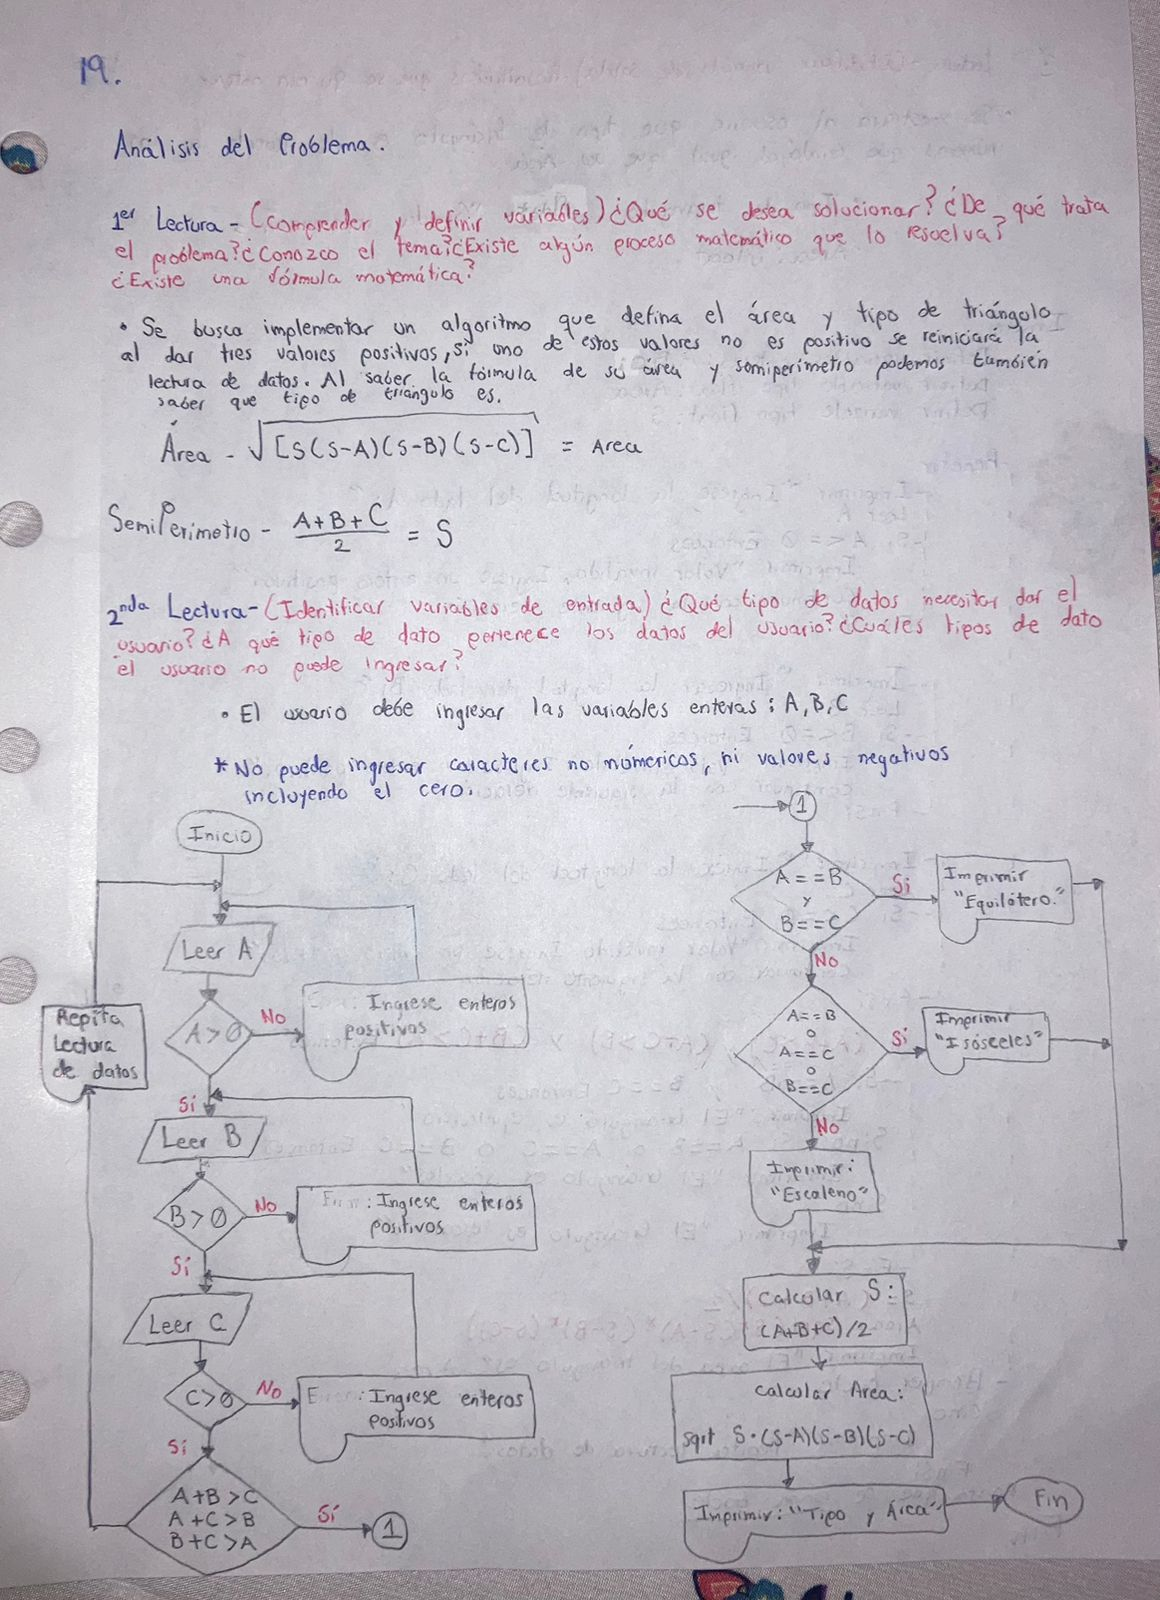 19.
Análisis del Problema.
1er Lectura - (Comprender y definir variables) ¿Qué se desea solucionar? ¿De qué trata
el problema? ¿Conozco el tema? ¿Existe algún proceso matemático que lo resuelva?
¿Existe una fórmula matemática?
• Se busca implementar un algoritmo que defina el área y tipo de triángulo
al dar tres valores positivos, si uno de estos valores no es positivo se reiniciará la
lectura de datos. Al saber la fórmula de su área y semiperímetro podemos también
saber que tipo de triángulo es.
Área - √[S(S-A)(S-B)(S-C)] = Area
SemiPerímetro - A+B+C/2 = S
2nda Lectura - (Identificar variables de entrada) ¿Qué tipo de datos necesitar dar el
usuario? ¿A qué tipo de dato pertenece los datos del usuario? ¿Cuáles tipos de dato
el usuario no puede ingresar?
• El usuario debe ingresar las variables enteras: A, B, C
* No puede ingresar caracteres no númericos, ni valores negativos
incluyendo el cero.
Inicio
Leer A
A>0
No
: Ingrese enteros
positivos
Repita
Lectura
de datos
Sí
Leer B
B>0
No
: Ingrese enteros
positivos
Sí
Leer C
C>0
No
: Ingrese enteros
positivos
Sí
A+B>C
A+C>B
B+C>A
Sí
1
1
A==B
y
B==C
Sí
Imprimir
"Equilátero."
No
A==B
o
A==C
o
B==C
Sí
Imprimir
"Isósceles"
No
Imprimir:
"Escaleno"
Calcular S:
(A+B+C)/2
calcular Area:
sqrt S·(S-A)(S-B)(S-C)
Imprimir: "Tipo y Área"
Fin